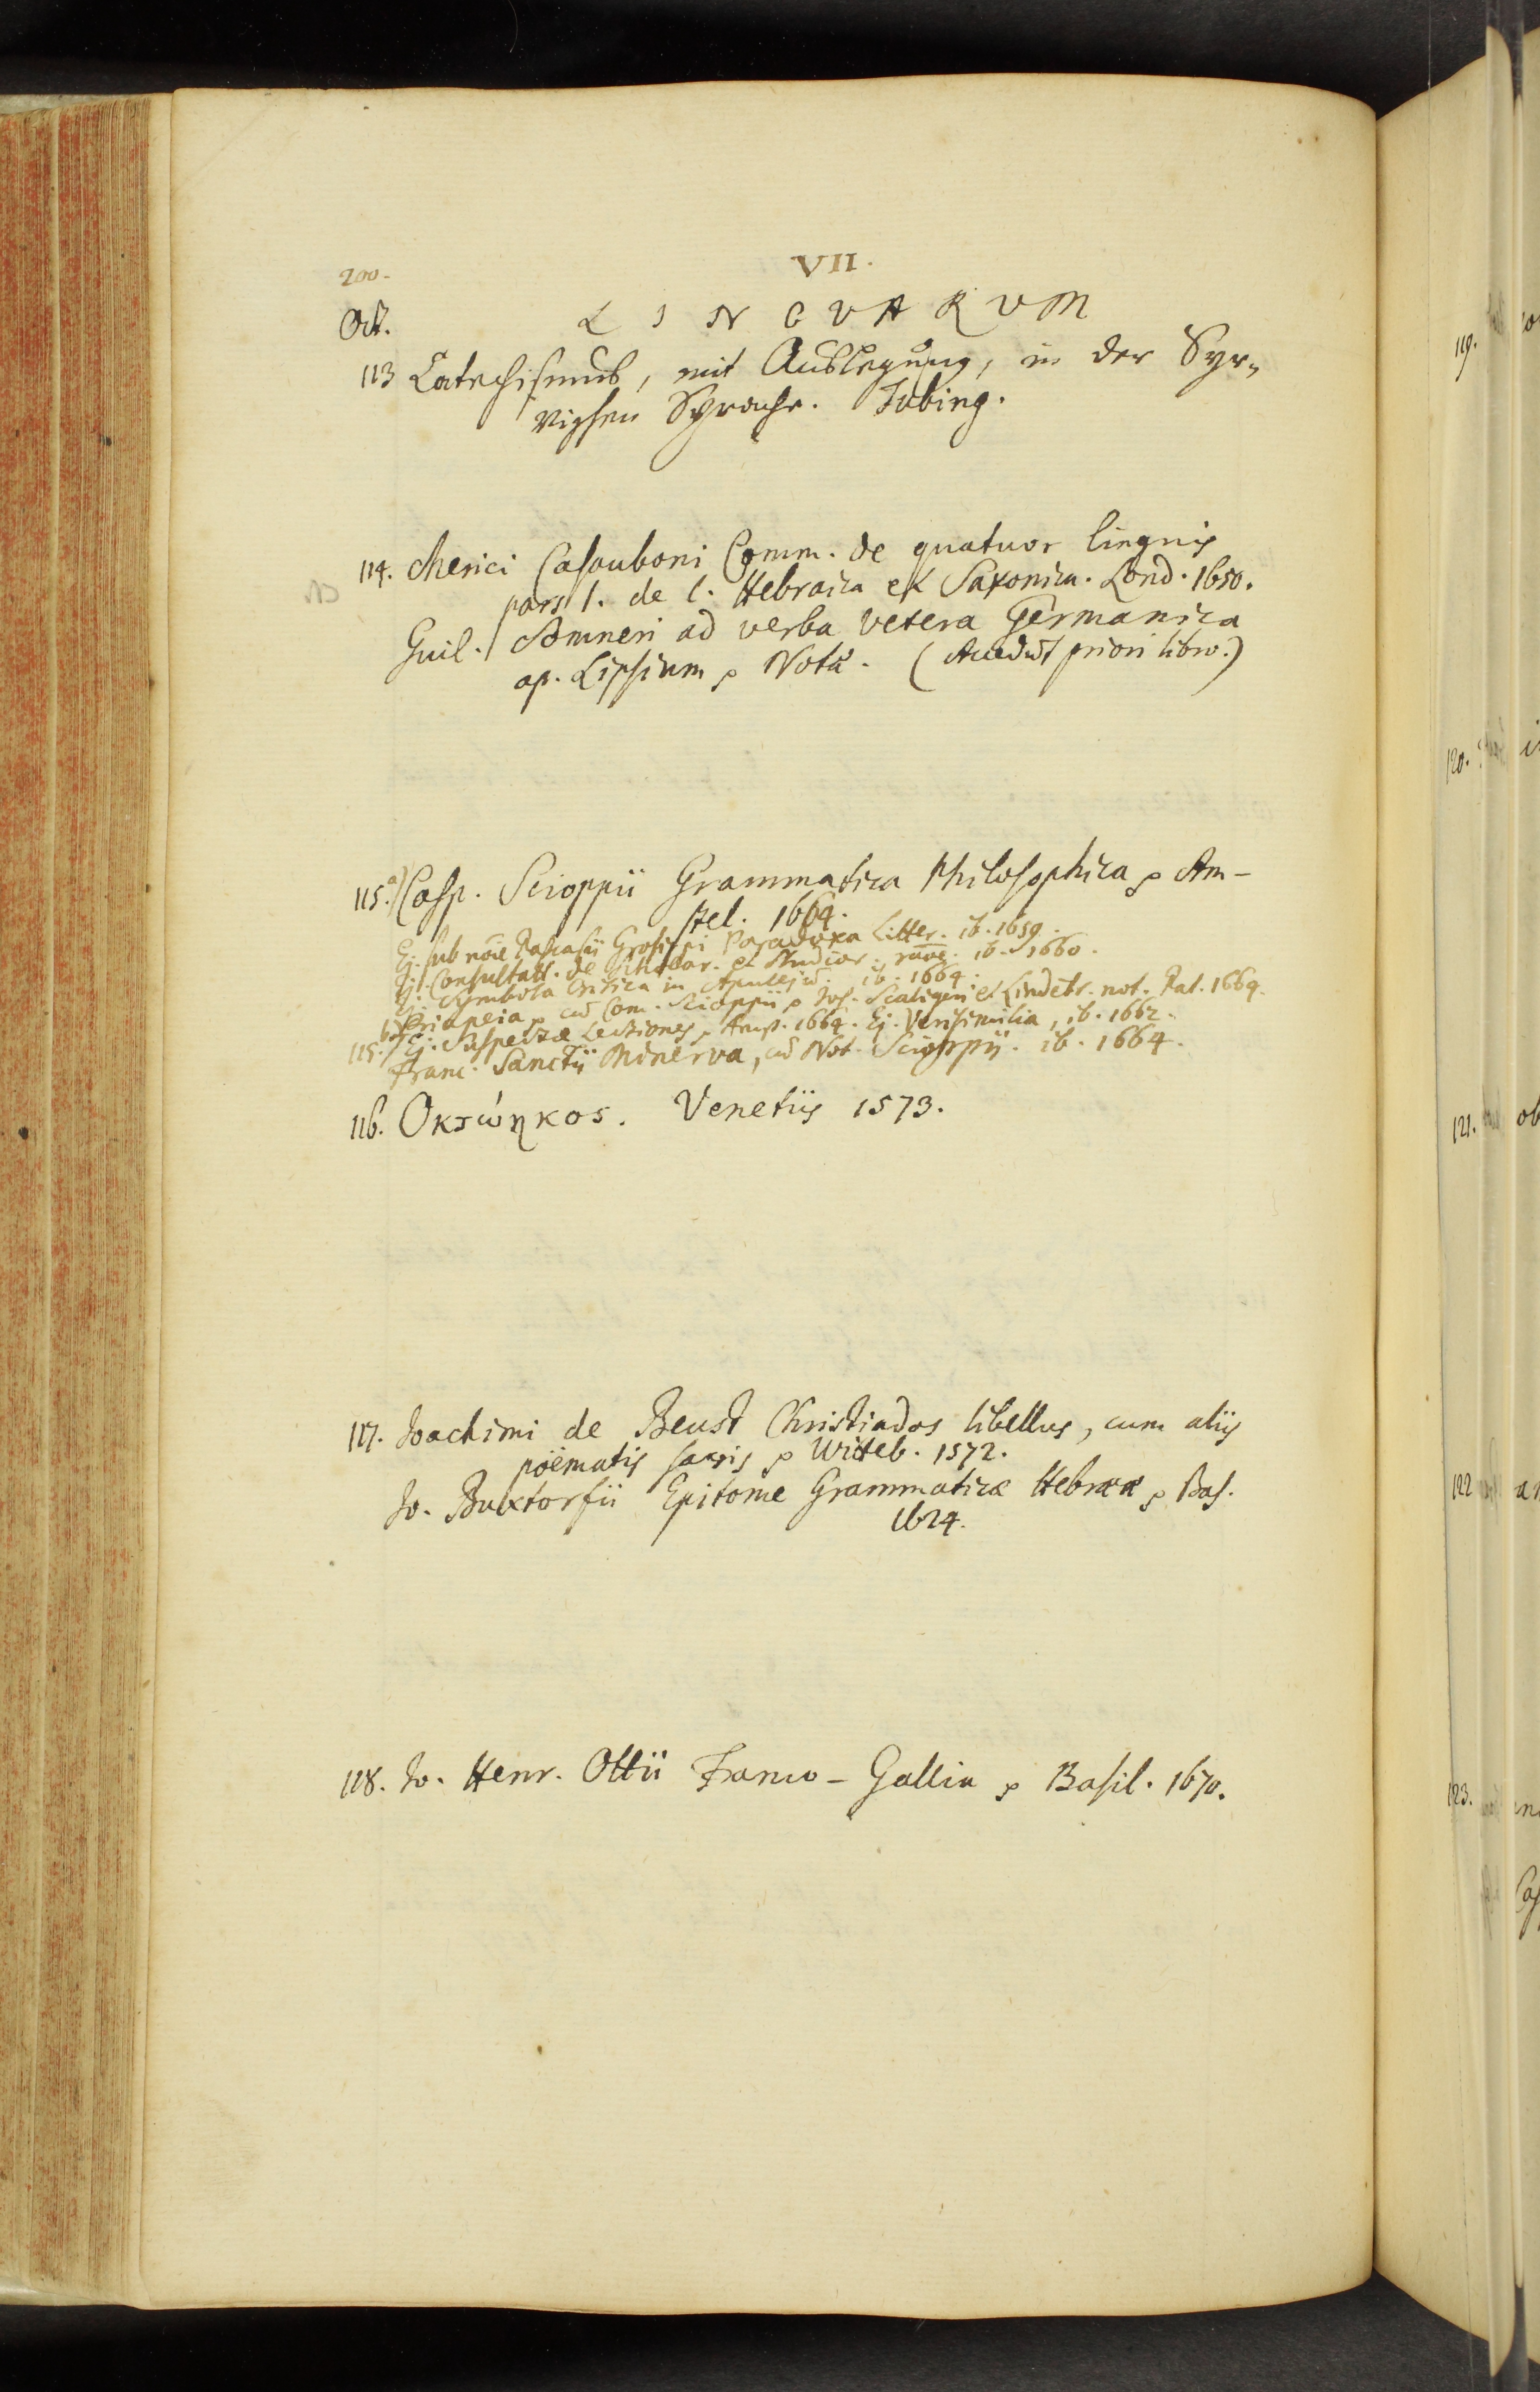 200.
VII.
Oct.
LINGVARUM
113 Catechismus, mit Außlegung, in der Syr=
vischen Sprache. Tubing.
114. Merici Casauboni Comm. de quatuor linguis
pars 1. de l. Hebraica et Saxonica. Lond. 1650.
Guil. Somneri ad verba vetera Germanica
ap. Lipsium, Notæ. (Accedut priori libro.)
115. a) Casp. Scioppii Grammatica Philosophica, Am-
stel. 1664.
Ej. sub noie Pascasii Grosippi Paradoxa Litter. ib. 1659.
Ej. Consultatt. de Scholar. et Studior. raoe. ib. 1660.
Ej. Symbola Critica in Apulejū. ib. 1664.
Priapeia, cū Com. Scioppii, Jos. Scaligeri et Lindebr. not. Pat. 1664.
115. b) Ej. Suspectæ Lectiones, Amst. 1664. Ej. Verisimilia, ib. 1662.
Franc. Sanctii Minerva, cū Not. Scioppii. ib. 1664.
116. Οκτώηκος. Venetiis 1573.
117. Joachimi de Beust Christiados libellus, cum aliis
poëmatis sacris, Witeb. 1572.
Jo. Buxtorfii Epitome Grammaticæ Hebrææ, Bas.
1624.
118. Jo. Henr. Ottii Franco-Gallia, Basil. 1670.
119.
120.
121.
122
123.